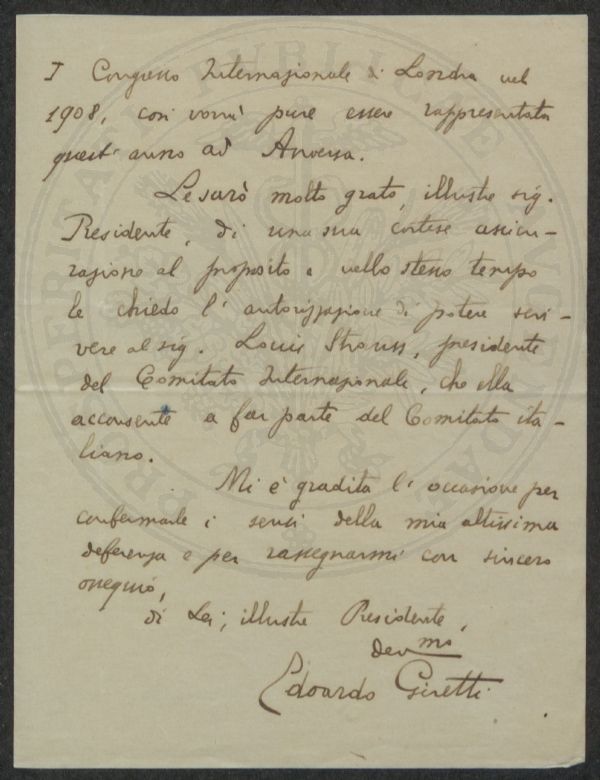 I Congresso Internazionale di Londra nel
1908, così vorrà pure essere rappresentata
quest'anno ad Anversa.
Le sarò molto grato, illustre sig.
Presidente, di una sua cortese assicu-
razione al proposito e nello stesso tempo
le chiedo l'autorizzazione di potere scri-
vere al sig. Louis Strauss, presidente
del Comitato Internazionale, che ella
acconsente a far parte del Comitato ita-
liano.
Mi è gradita l'occasione per
confermarle i sensi della mia altissima
deferenza e per rassegnarmi con sincero
ossequio,
di Lei, illustre Presidente,
dev.mo
Edoardo Giretti